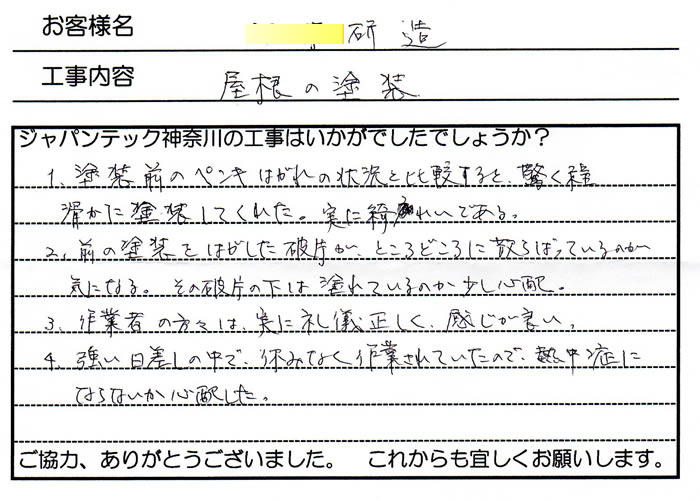 お客様名 研造
工事内容 屋根の塗装
ジャパンテック神奈川の工事はいかがでしたでしょうか？
1、塗装前のペンキはがれの状況と比較すると、驚く程
滑かに塗装してくれた。実に綺れいである。
2、前の塗装をはがした破片が、ところどころに散らばっているのが
気になる。その破片の下は塗れているのか少し心配。
3、作業者の方々は、実に礼儀正しく、感じが良い。
4、強い日差しの中で、休みなく作業されていたので、熱中症に
ならないか心配した。
ご協力、ありがとうございました。 これからも宜しくお願いします。